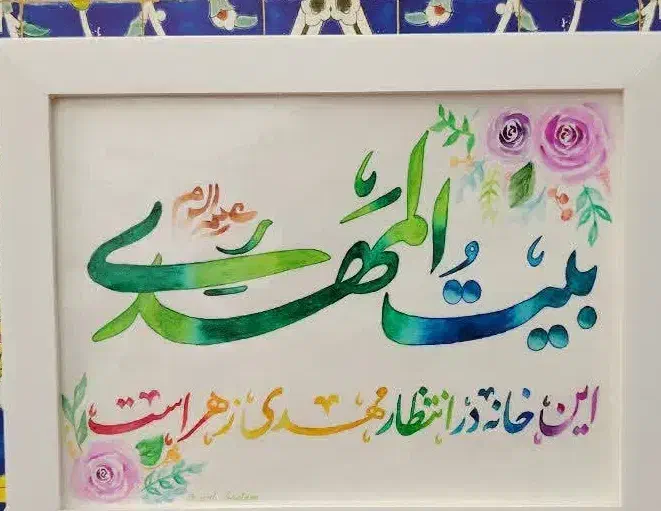 بیتُ المهدی
علیه‌السلام
این خانه در انتظار مهدی زهراست